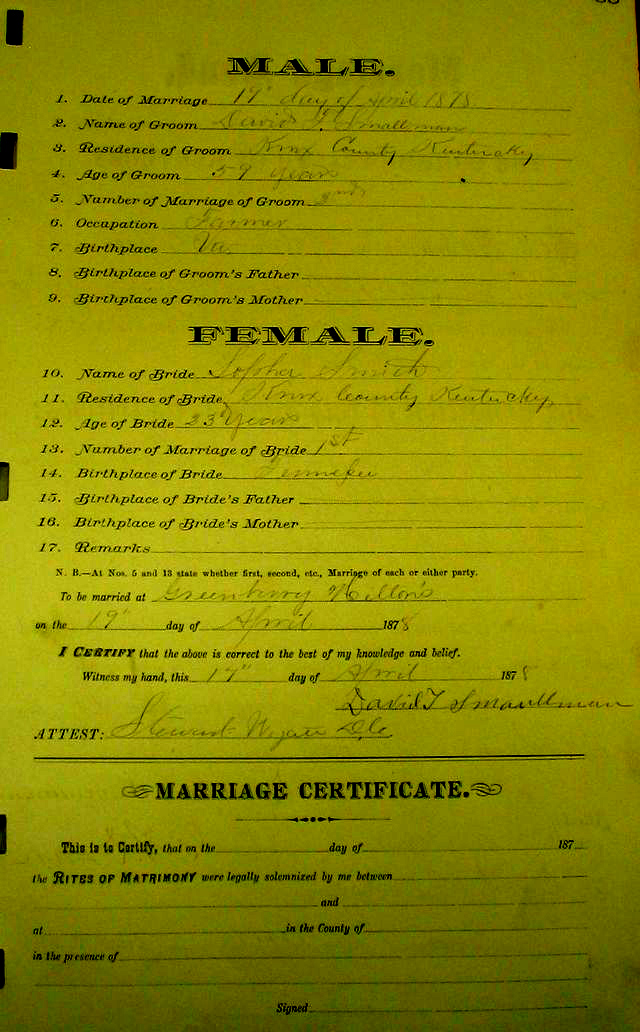 MALE.
1. Date of Marriage 19" day of April 1878
2. Name of Groom David T. Smallman
3. Residence of Groom Knox County Kentucky
4. Age of Groom 59 years
5. Number of Marriage of Groom 2nd
6. Occupation Farmer
7. Birthplace Va.
8. Birthplace of Groom's Father
9. Birthplace of Groom's Mother
FEMALE.
10. Name of Bride Smith
11. Residence of Bride Knox County Kentucky
12. Age of Bride 23 Years
13. Number of Marriage of Bride 1st
14. Birthplace of Bride
15. Birthplace of Bride's Father
16. Birthplace of Bride's Mother
17. Remarks
N. B.—At Nos. 5 and 13 state whether first, second, etc., Marriage of each or either party.
To be married at Greenberry
on the 19" day of April 1878
I CERTIFY that the above is correct to the best of my knowledge and belief.
Witness my hand, this day of April 1878
David T Smaullman
ATTEST: Stewart D.C.
MARRIAGE CERTIFICATE.
This is to Certify, that on the day of 187
the RITES OF MATRIMONY were legally solemnized by me between
and
at in the County of
in the presence of
Signed